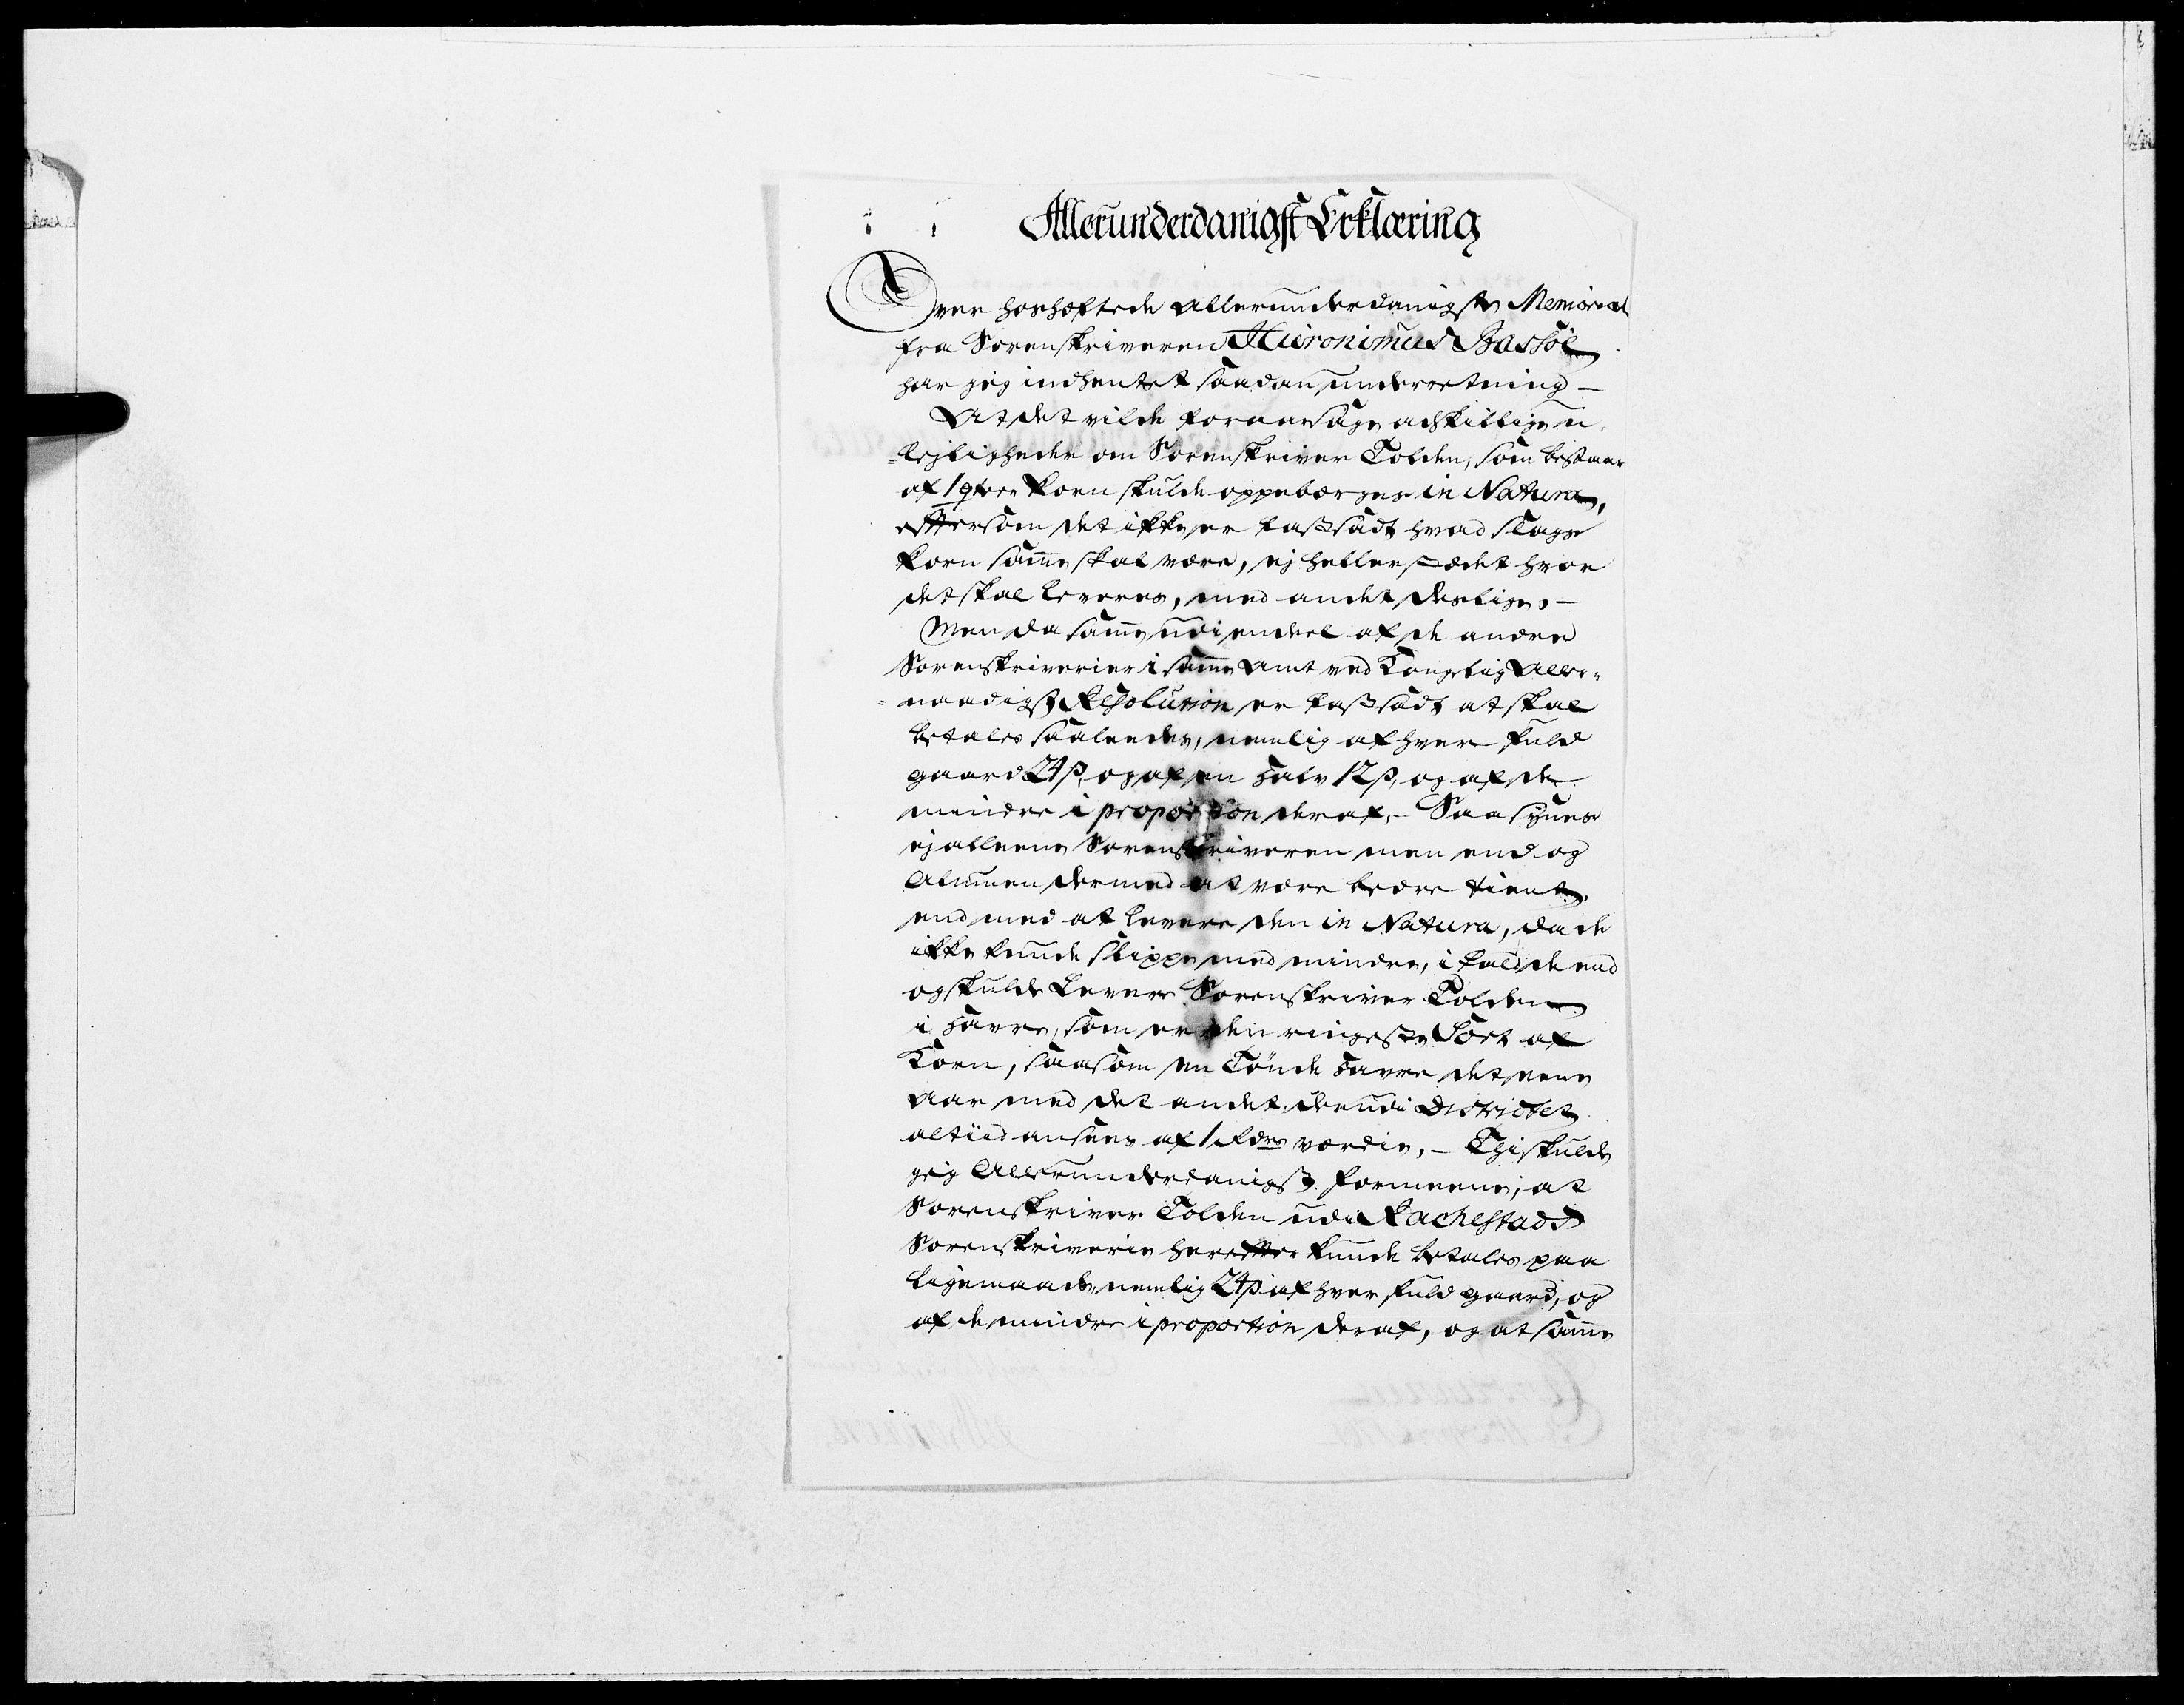 Allerunderdanigst Erklæring
Over hoshæftede allerunderdanigste Memorial
fra Sorenskriveren Hieronimus Bassøe
har jeg indhentet saadan underretning –
At det vilde foraarsage adskillige u-
-lejligheder om Sorenskriver Tolden, som bestaar
af 1 qter korn skulde oppebærges in Natura,
eftersom det ikke er fastsadt hvad slags
korn samme skal være, ej heller stædet hvor
det skal leveres, med andet deslige, –
Men da samme udi endeel af de andre
Sorenskriverier i samme Amt ved Kongelig Aller-
-naadigst Resolution er fastsadt at skal
betales saaledes, nemlig af hver fuld
gaard 24 ß, og af en halv 12 ß, og af de
mindre i proportion deraf, – Saa synes
ej alleene Sorenskriveren men end og
Almuen dermed at være bedre tient,
end med at levere den in Natura, da de
ikke kunde slippe med mindre, i fald de end
og skulde Levere Sorenskriver Tolden
i havre, som er den ringeste Sort af
Korn, saasom en Tønde havre det eene
aar med det andet derudi Districtet
altiid ansees af 1 Rdrs værdie, – Thi skulde
jeg Allerunderdanigst formeene, at
Sorenskriver Tolden udi Rachestads
Sorenskriverie herefter kunde betales paa
ligemaade, nemlig 24 ß af hver fuld gaard, og
af de mindre i proportion deraf, og at samme